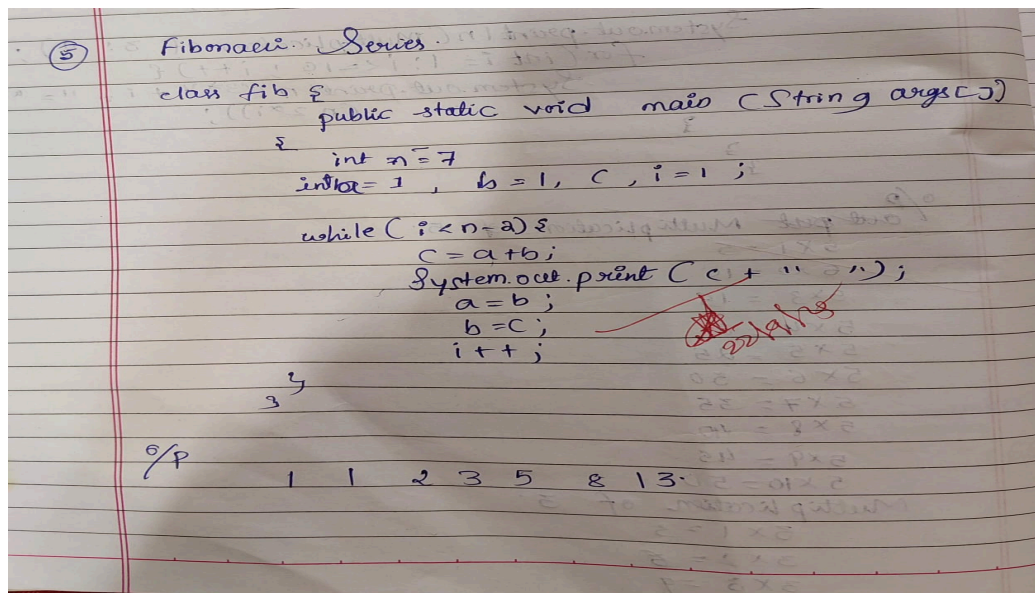 5 Fibonacci Series.
class fib {
public static void main (String args[])
{
int n = 7
int a = 1, b = 1, c, i = 1 ;
while ( i < n - 2) {
c = a + b ;
System.out.print ( c + " " ) ;
a = b ;
b = c ;
i + + ;
}
}
O/P
1 1 2 3 5 8 13.